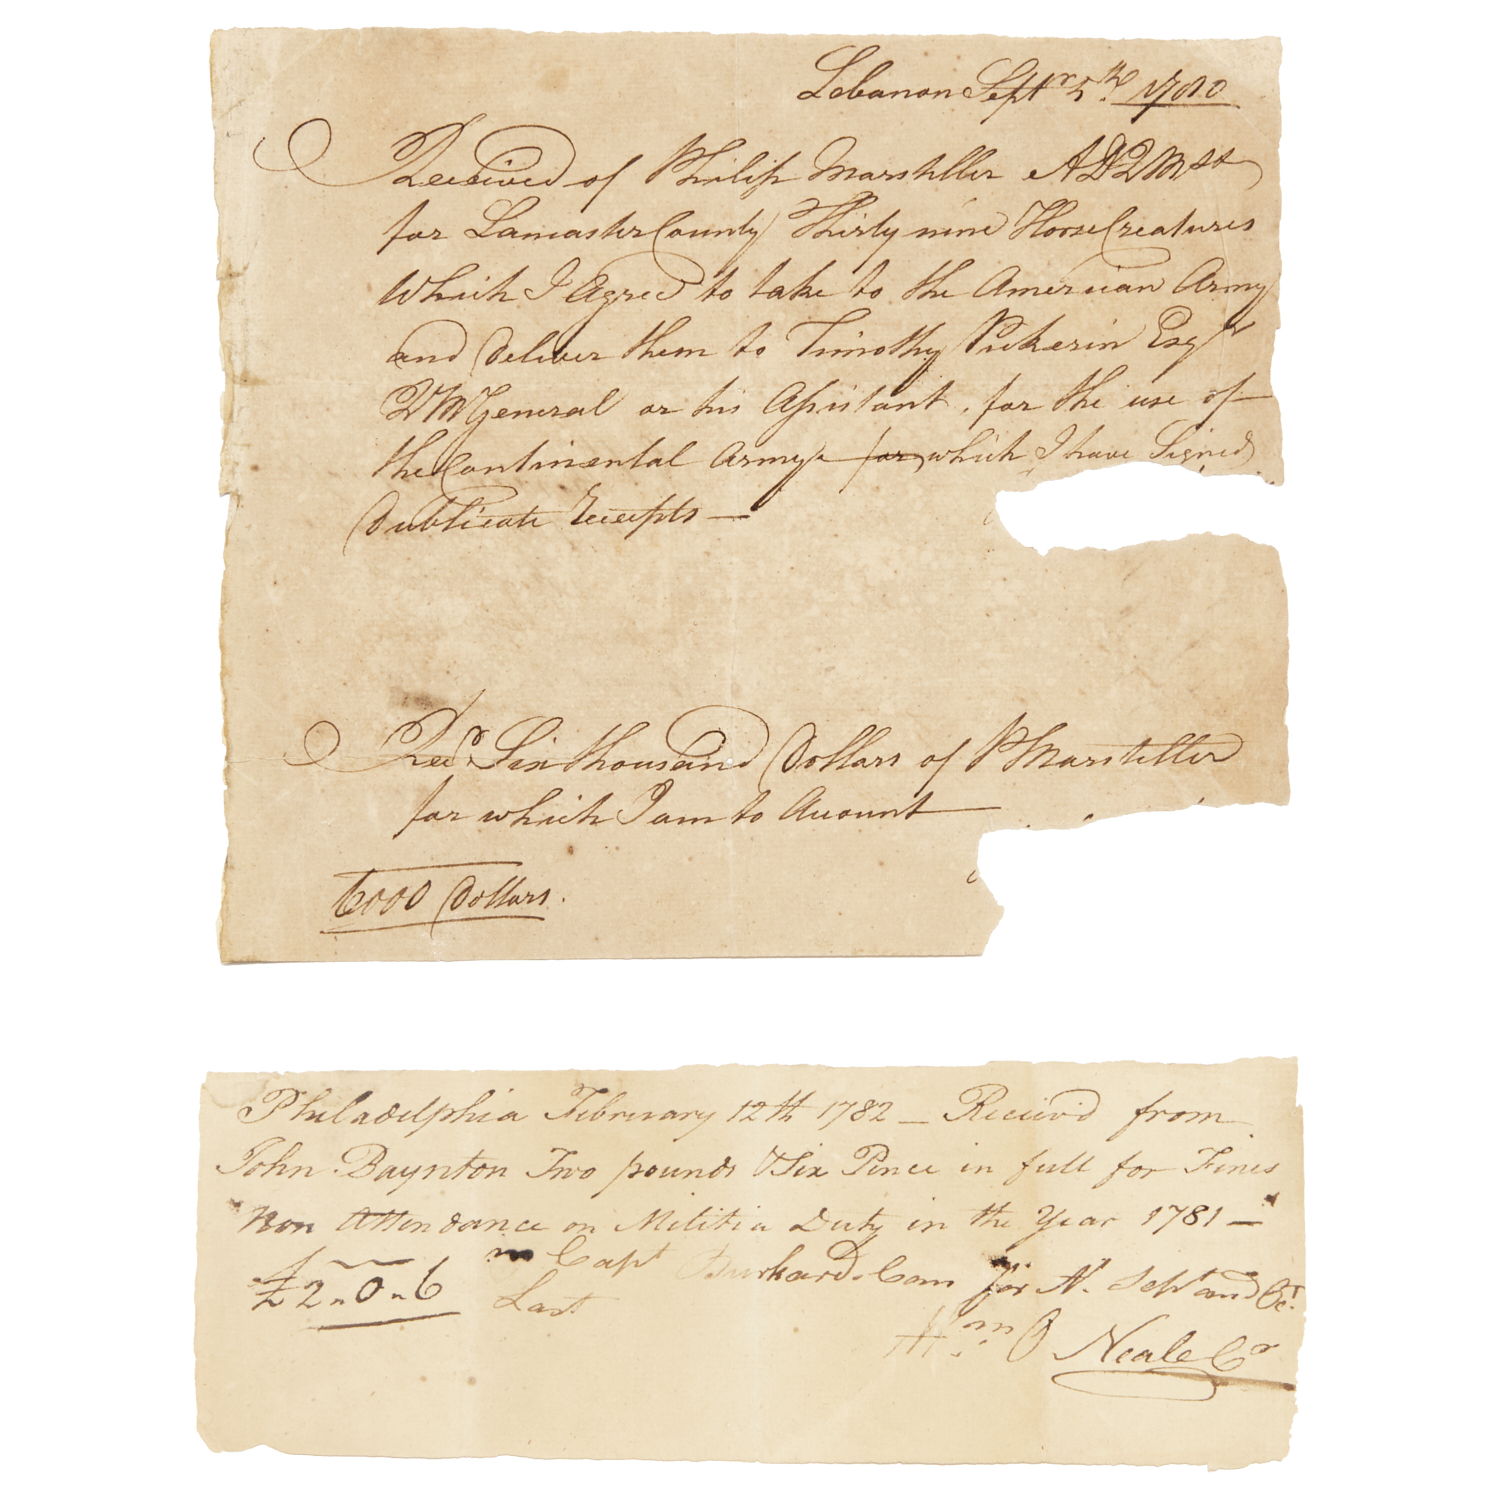 Lebanon Septr 5th 1780
Received of Philip Marsteller ADQMr
for Lancaster County Thirty nine Horse Creatures
Which I Agreed to take to the American Army
and Deliver them to Timothy Pickerin Esqr
QMGeneral or his Assistant, for the use of
the Continental Army for which I have Signed
Dublicate Receipts —
Recd Six thousand Dollars of PMarsteller
for which I am to Account
6000 Dollars.
Philadelphia February 12th 1782 — Received from
John Baynton Two pounds & Six Pence in full for Fines
Non Attendance on Militia Duty in the Year 1781 —
£2 „ 0 „ 6 in Capt Burkard Com for A. Sept and Ocr.
Last
Wm O Neale Cr